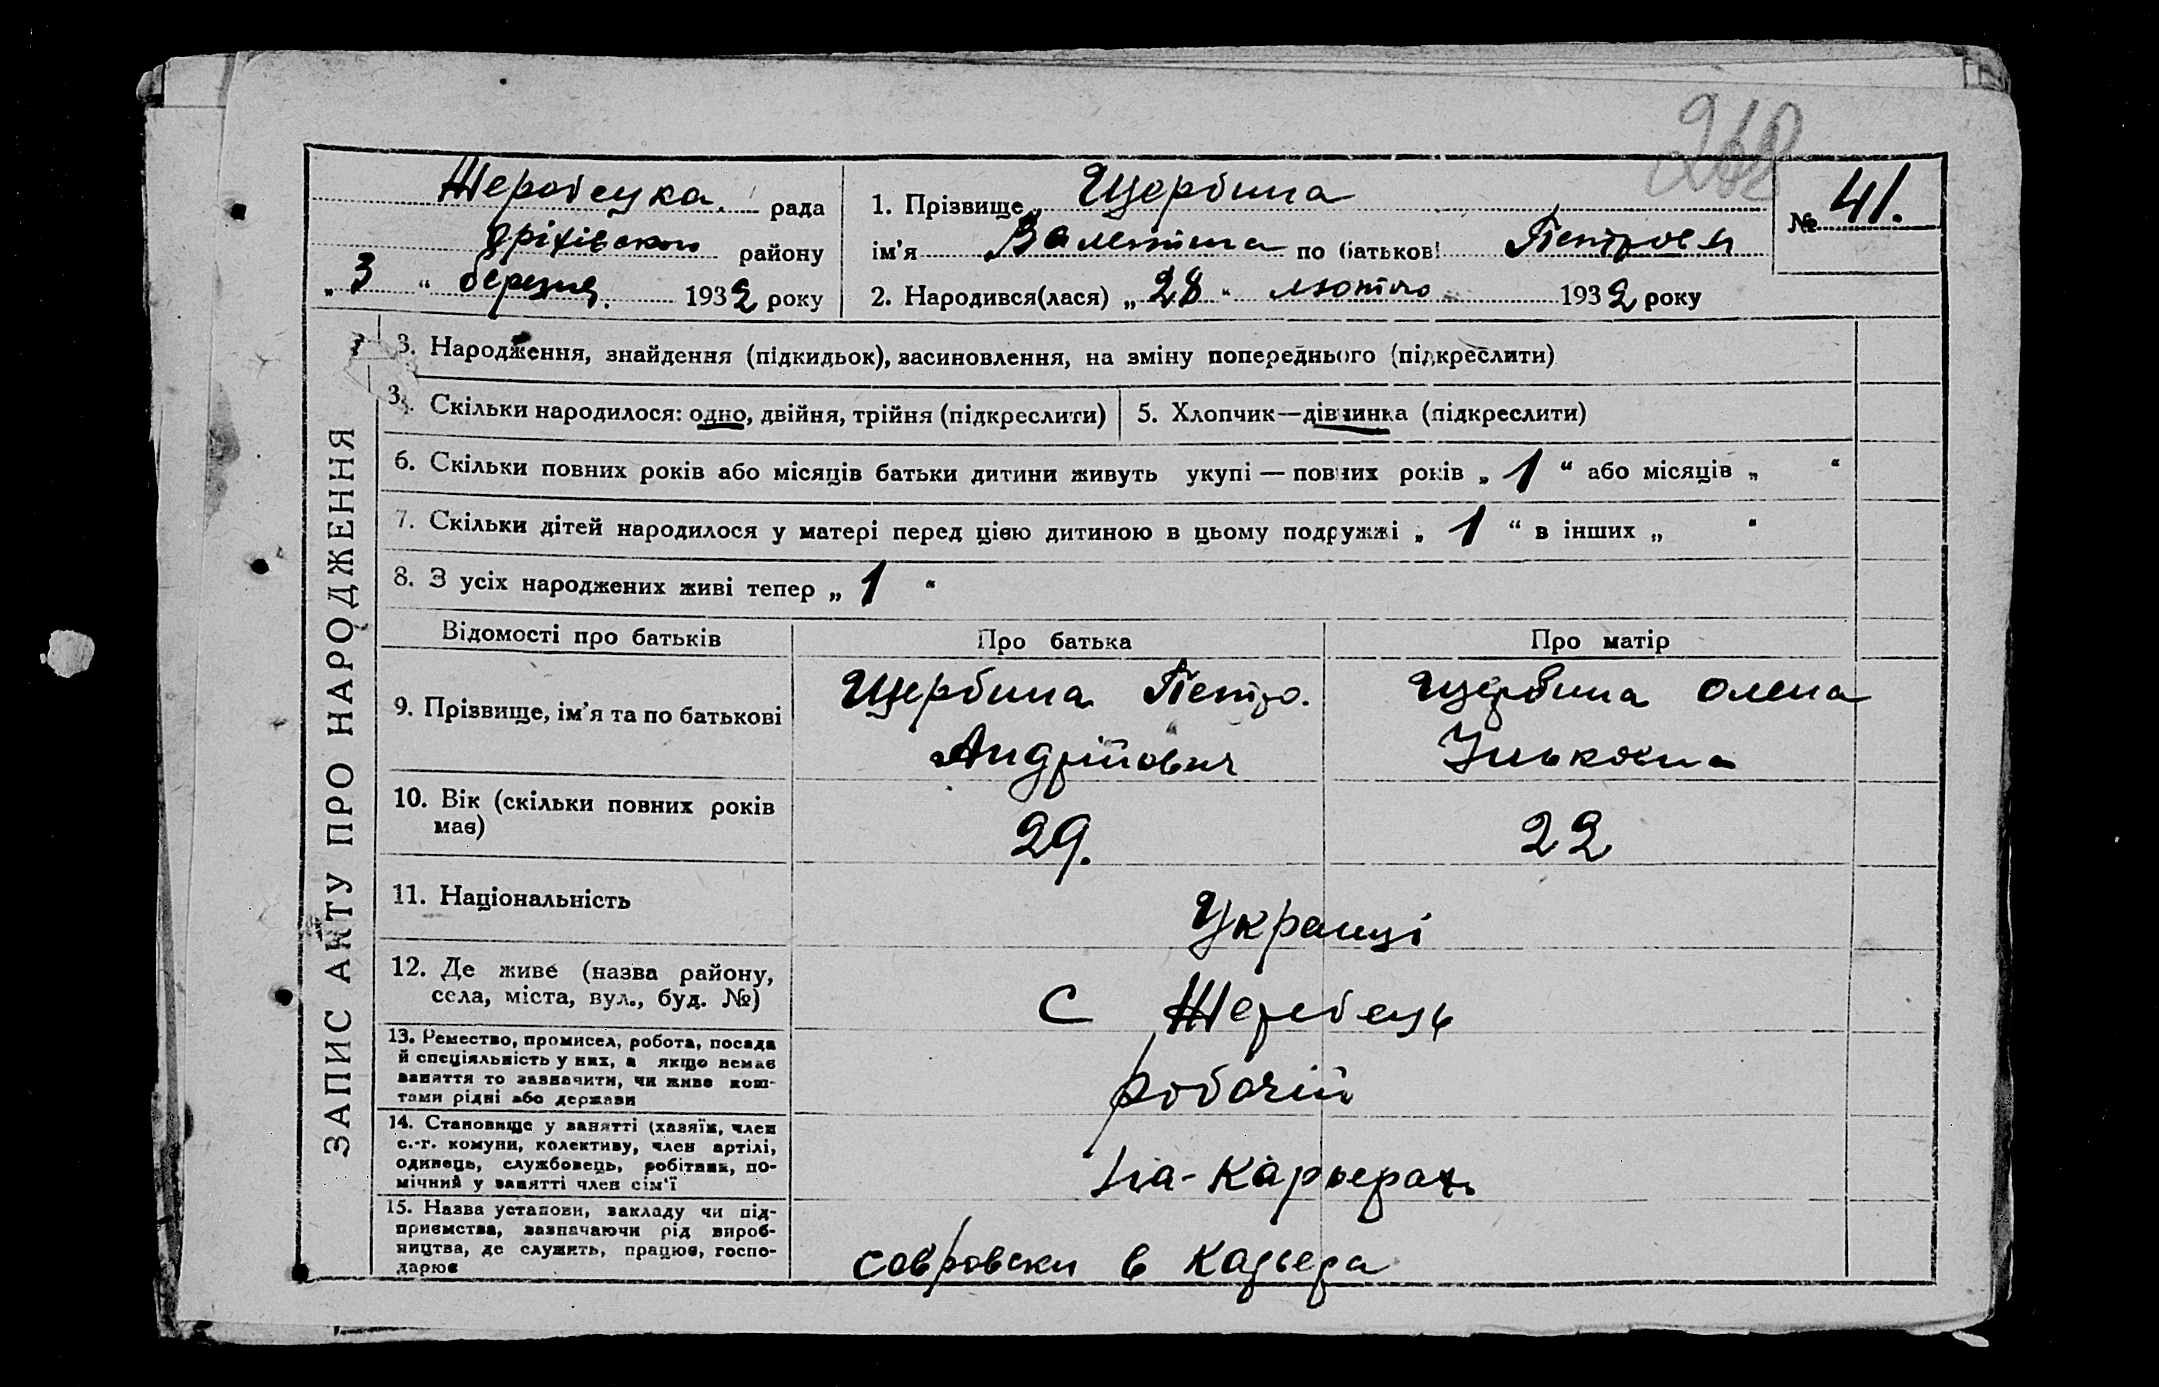 268
Жеребецка рада
Оріхівського району
„ 3 “ березня. 1932 року
1. Прізвище Щербина
ім'я Валентина по батькові Петровн
2. Народився(лася) „ 28 “ лютого 1932 року
№ 41.
ЗАПИС АКТУ ПРО НАРОДЖЕННЯ
3. Народження, знайдення (підкидьок), васиновлення, на зміну попереднього (підкреслити)
Скільки народилося: одно, двійня, трійня (підкреслити)
5. Хлопчик—дівчинка (підкреслити)
6. Скільки повних років або місяців батьки дитини живуть укупі — повних років „ 1 “ або місяців „ “
7. Скільки дітей народилося у матері перед цією дитиною в цьому подружжі „ 1 “ в інших „ “
8. З усіх народжених живі тепер „ 1 “
Відомості про батьків
Про батька
Про матір
9. Прізвище, ім'я та по батькові
Щербина Петро.
Андрійович
Щербина Олена
Ильковна
10. Вік (скільки повних років
має)
29.
22
11. Національність
Українці
12. Де живе (назва району,
села, міста, вул., буд. №)
С Жеребець
13. Ремество, промисел, робота, посада
й спеціяльність у них, а якщо немає
заняття то зазначити, чи живе кош-
тами рідні або держави
робочій
14. Становище у занятті (хазяїн, член
с.-г. комуни, колективу, член артілі,
одинець, службовець, робітник, по-
мічний у занятті член сім'ї
на-Карьерах
15. Назва установи, закладу чи під-
приємства, зазначаючи рід вироб-
ництва, де служить, працює, госпо-
дарює
в Карьера